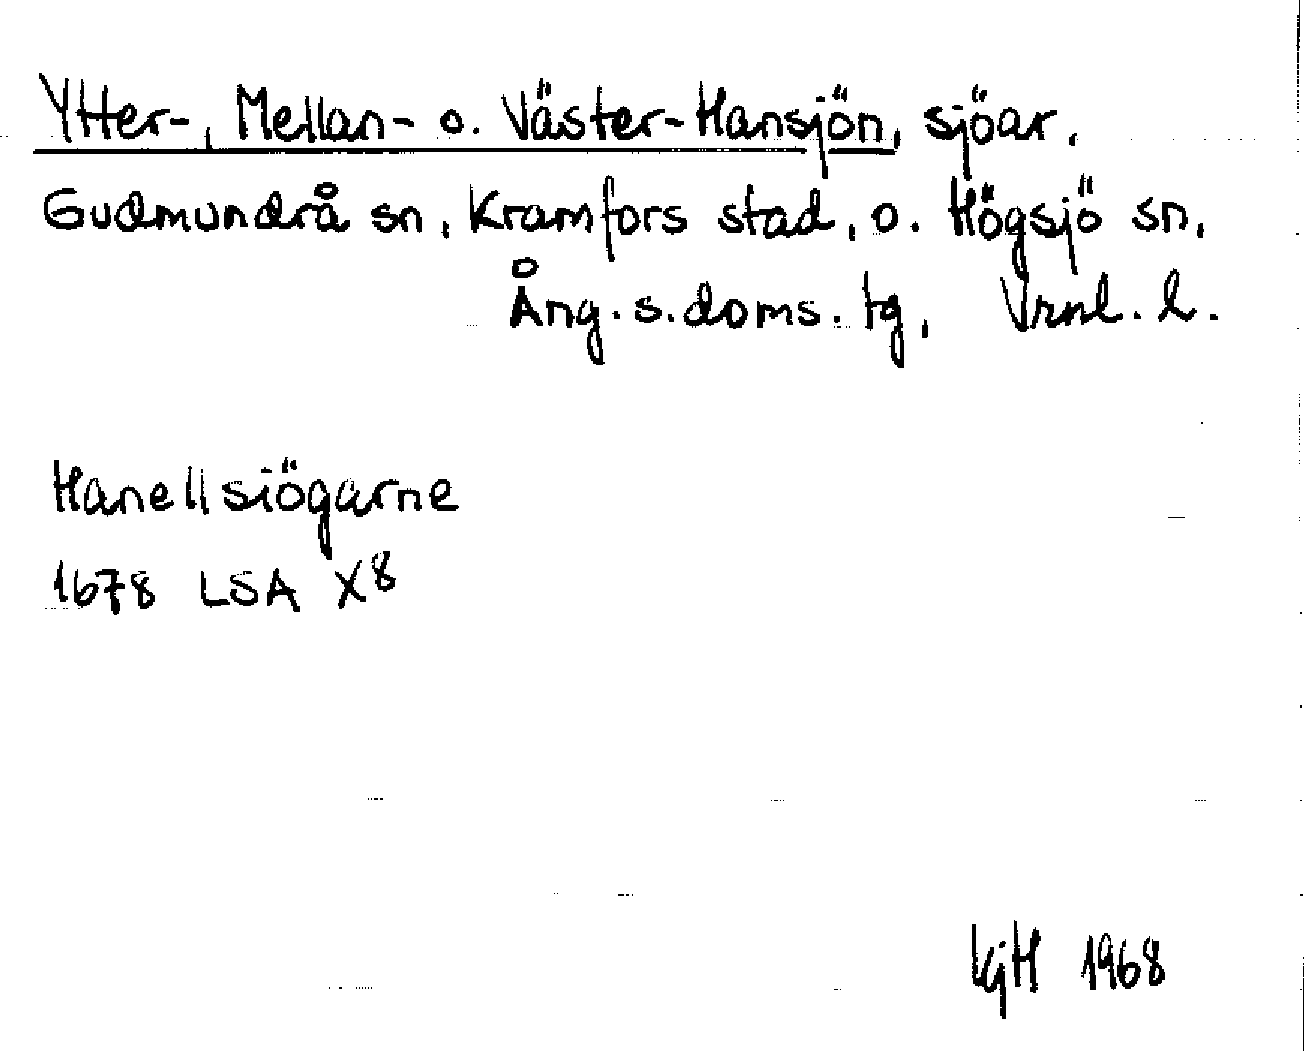 Ytter-, Mellan- o. Väster-Hansjön, sjöar.
Gudmundrå sn, Kramfors stad, o. Högsjö sn,
Ång. s. doms. tg, Vrnl. l.
Hanellsiögarne
1678 LSA X8
KjH 1968